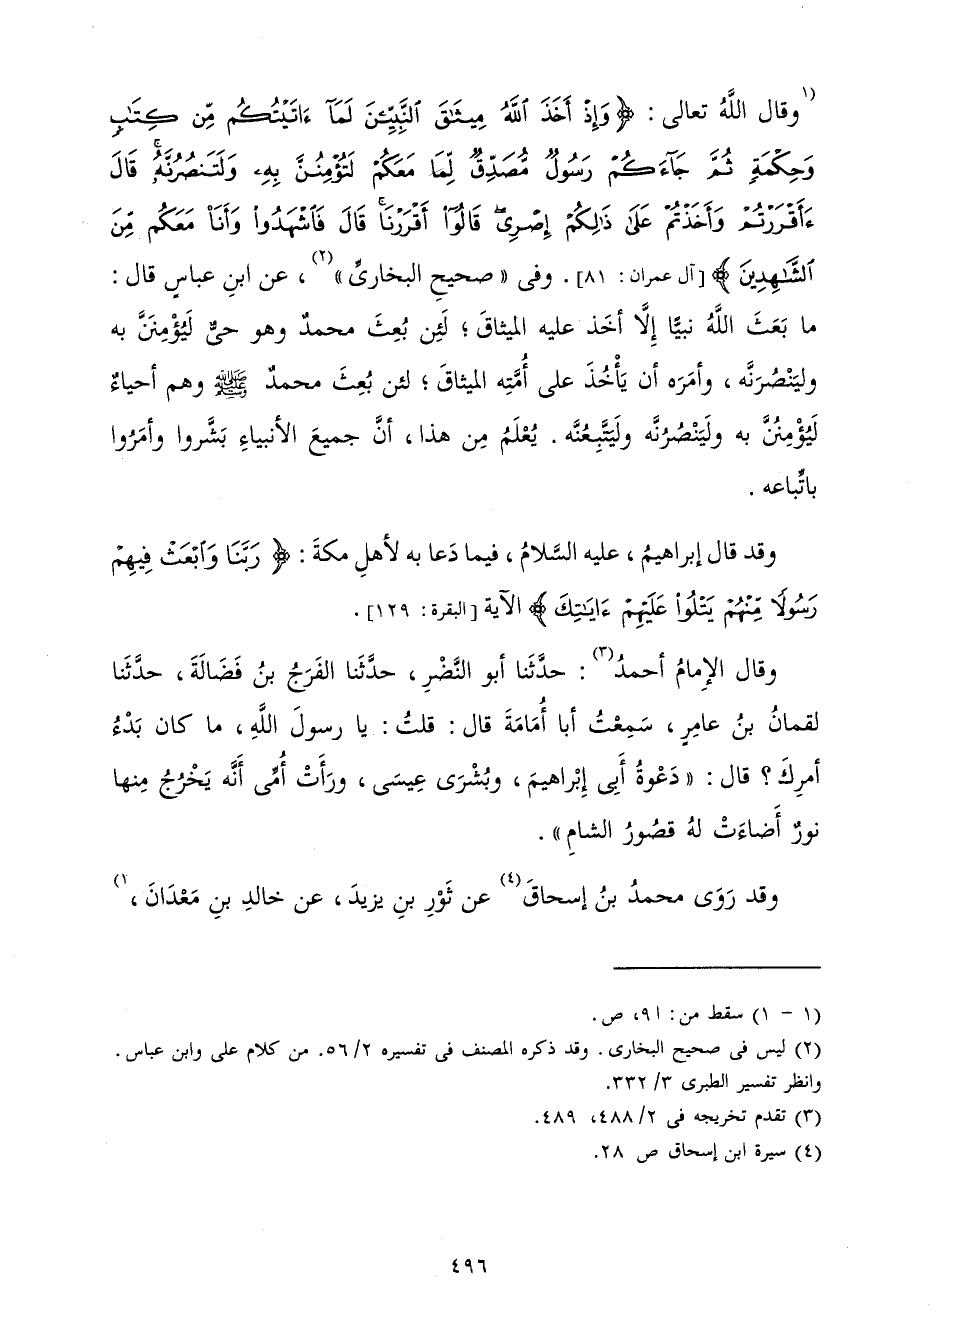 (١ وقال اللَّهُ تعالى : ﴿ وَإِذْ أَخَذَ ٱللَّهُ مِيثَٰقَ ٱلنَّبِيِّـۧنَ لَمَآ ءَاتَيْتُكُم مِّن كِتَٰبٍ
وَحِكْمَةٍ ثُمَّ جَآءَكُمْ رَسُولٌ مُّصَدِّقٌ لِّمَا مَعَكُمْ لَتُؤْمِنُنَّ بِهِۦ وَلَتَنصُرُنَّهُۥۚ قَالَ
ءَأَقْرَرْتُمْ وَأَخَذْتُمْ عَلَىٰ ذَٰلِكُمْ إِصْرِىۖ قَالُوٓا۟ أَقْرَرْنَاۚ قَالَ فَٱشْهَدُوا۟ وَأَنَا۠ مَعَكُم مِّنَ
ٱلشَّٰهِدِينَ ﴾ [آل عمران : ٨١] . وفى « صحيح البخارىِّ »(٢) ، عن ابنِ عباسٍ قال :
ما بَعَثَ اللَّهُ نبيًّا إلَّا أخَذ عليه الميثاقَ ؛ لَئِن بُعِثَ محمدٌ وهو حىٌّ لَيُؤْمِنَنَّ به
وليَنْصُرَنَّه ، وأمَرَه أن يَأْخُذَ على أُمَّتِه الميثاقَ ؛ لئن بُعِثَ محمدٌ ﷺ وهم أحياءٌ
لَيُؤْمِنُنَّ به ولَيَنْصُرُنَّه ولَيَتَّبِعُنَّه . يُعْلَمُ مِن هذا ، أنَّ جميعَ الأنبياءِ بَشَّروا وأمَرُوا
باتِّباعه .
وقد قال إبراهيمُ ، عليه السَّلامُ ، فيما دَعا به لأهلِ مكةَ : ﴿ رَبَّنَا وَٱبْعَثْ فِيهِمْ
رَسُولًا مِّنْهُمْ يَتْلُوا۟ عَلَيْهِمْ ءَايَٰتِكَ ﴾ الآية [البقرة : ١٢٩] .
وقال الإمامُ أحمدُ(٣) : حدَّثنا أبو النَّضْرِ ، حدَّثنا الفَرَجُ بنُ فَضَالَةَ ، حدَّثنا
لقمانُ بنُ عامرٍ ، سَمِعْتُ أبا أُمَامَةَ قال : قلتُ : يا رسولَ اللَّهِ ، ما كان بَدْءُ
أمرِكَ ؟ قال : « دَعْوةُ أَبِى إبْراهيمَ ، وبُشْرَى عِيسَى ، ورَأَتْ أُمِّى أَنَّه يَخْرُجُ مِنها
نورٌ أَضاءَتْ لهُ قصُورُ الشامِ » .
وقد رَوَى محمدُ بنُ إسحاقَ(٤) عن ثَوْرِ بنِ يزيدَ ، عن خالدِ بنِ مَعْدَانَ ،١)
(١ - ١) سقط من : ٩١، ص .
(٢) ليس فى صحيح البخارى . وقد ذكره المصنف فى تفسيره ٥٦/٢. من كلام على وابن عباس .
وانظر تفسير الطبرى ٣/ ٣٣٢.
(٣) تقدم تخريجه فى ٤٨٨/٢، ٤٨٩.
(٤) سيرة ابن إسحاق ص ٢٨.
٤٩٦